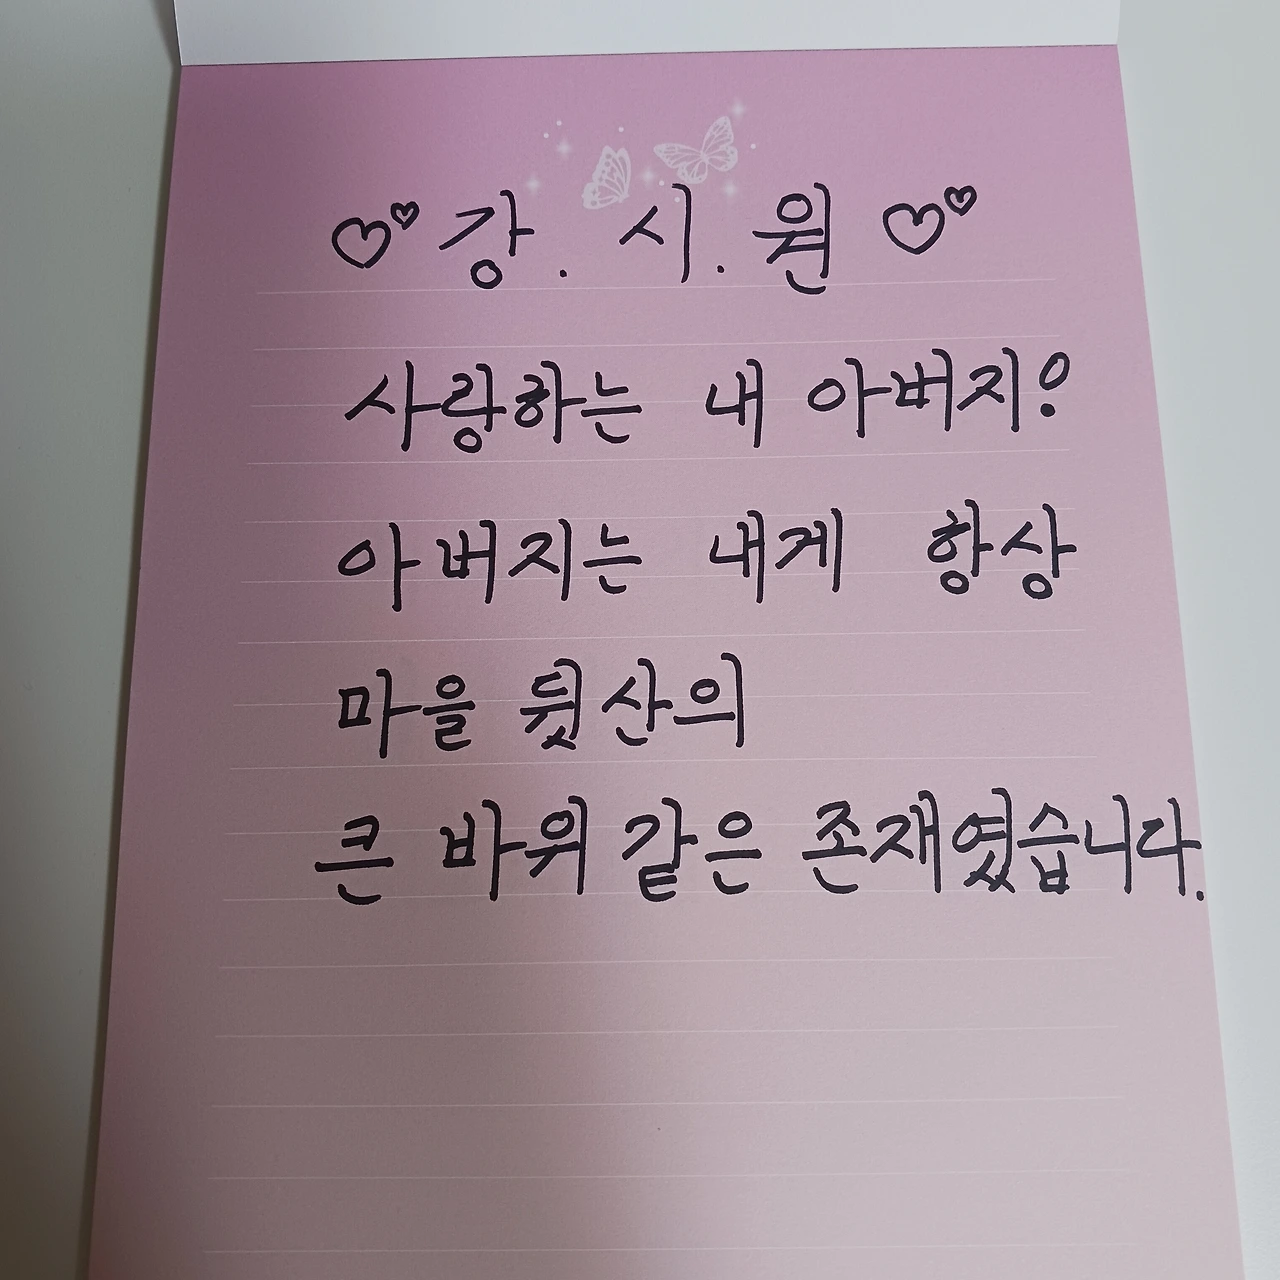 ♡♡강.시.원♡♡
사랑하는 내 아버지!
아버지는 내게 항상
마을 뒷산의
큰 바위 같은 존재였습니다.